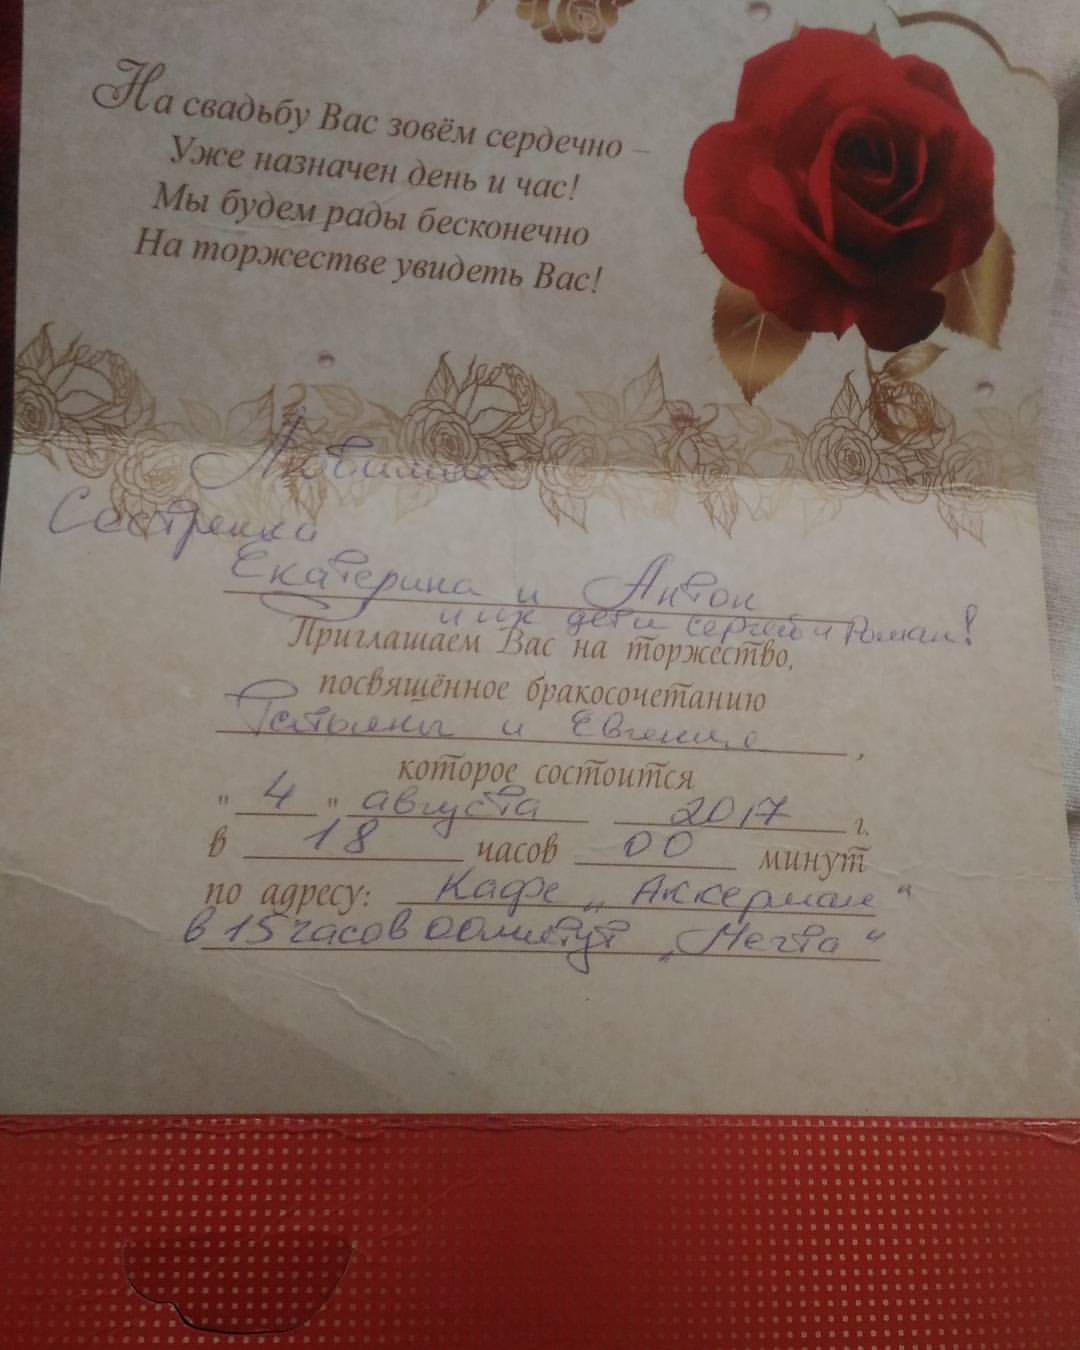 На свадьбу Вас зовём сердечно –
Уже назначен день и час!
Мы будем рады бесконечно
На торжестве увидеть Вас!
Любимая
Сестренка
Екатерина и Антон
и их дети Сергей и Роман!
Приглашаем Вас на торжество,
посвящённое бракосочетанию
Татьяны и Евгения,
которое состоится
"4" августа 2017 г.
в 18 часов 00 минут
по адресу: Кафе „Аккерман“
в 15 часов 00 минут „Мечта“